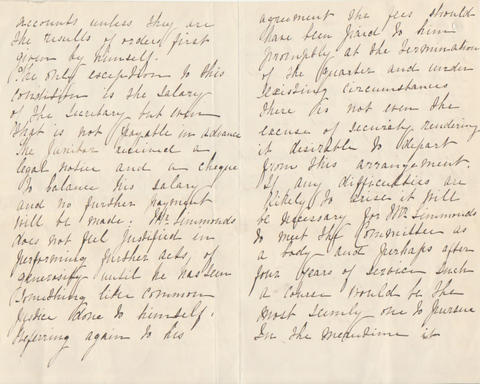 accounts unless they are
the results of orders first
given by himself.
The only exception to this
condition is the salary
of the Secretary but even
that is not payable in advance
The Janitor received a
legal notice and a cheque
to balance his salary
and no further payment
will be made. Mr Simmonds
does not feel justified in
performing further acts, of
generosity until he has seen
something like common
justice done to himself.
Referring again to his
agreement the fees should
have been paid to him
promptly at the termination
of the quarter and under
existing circumstances
there is not even the
excuse of security rendering
it desirable to depart
from this arrangement.
If any difficulties are
likely to arise it will
be necessary for Mr Simmonds
to meet the Committee as
a body and perhaps after
four years of service such
a course would be the
most seemly one to pursue
In the meantime it